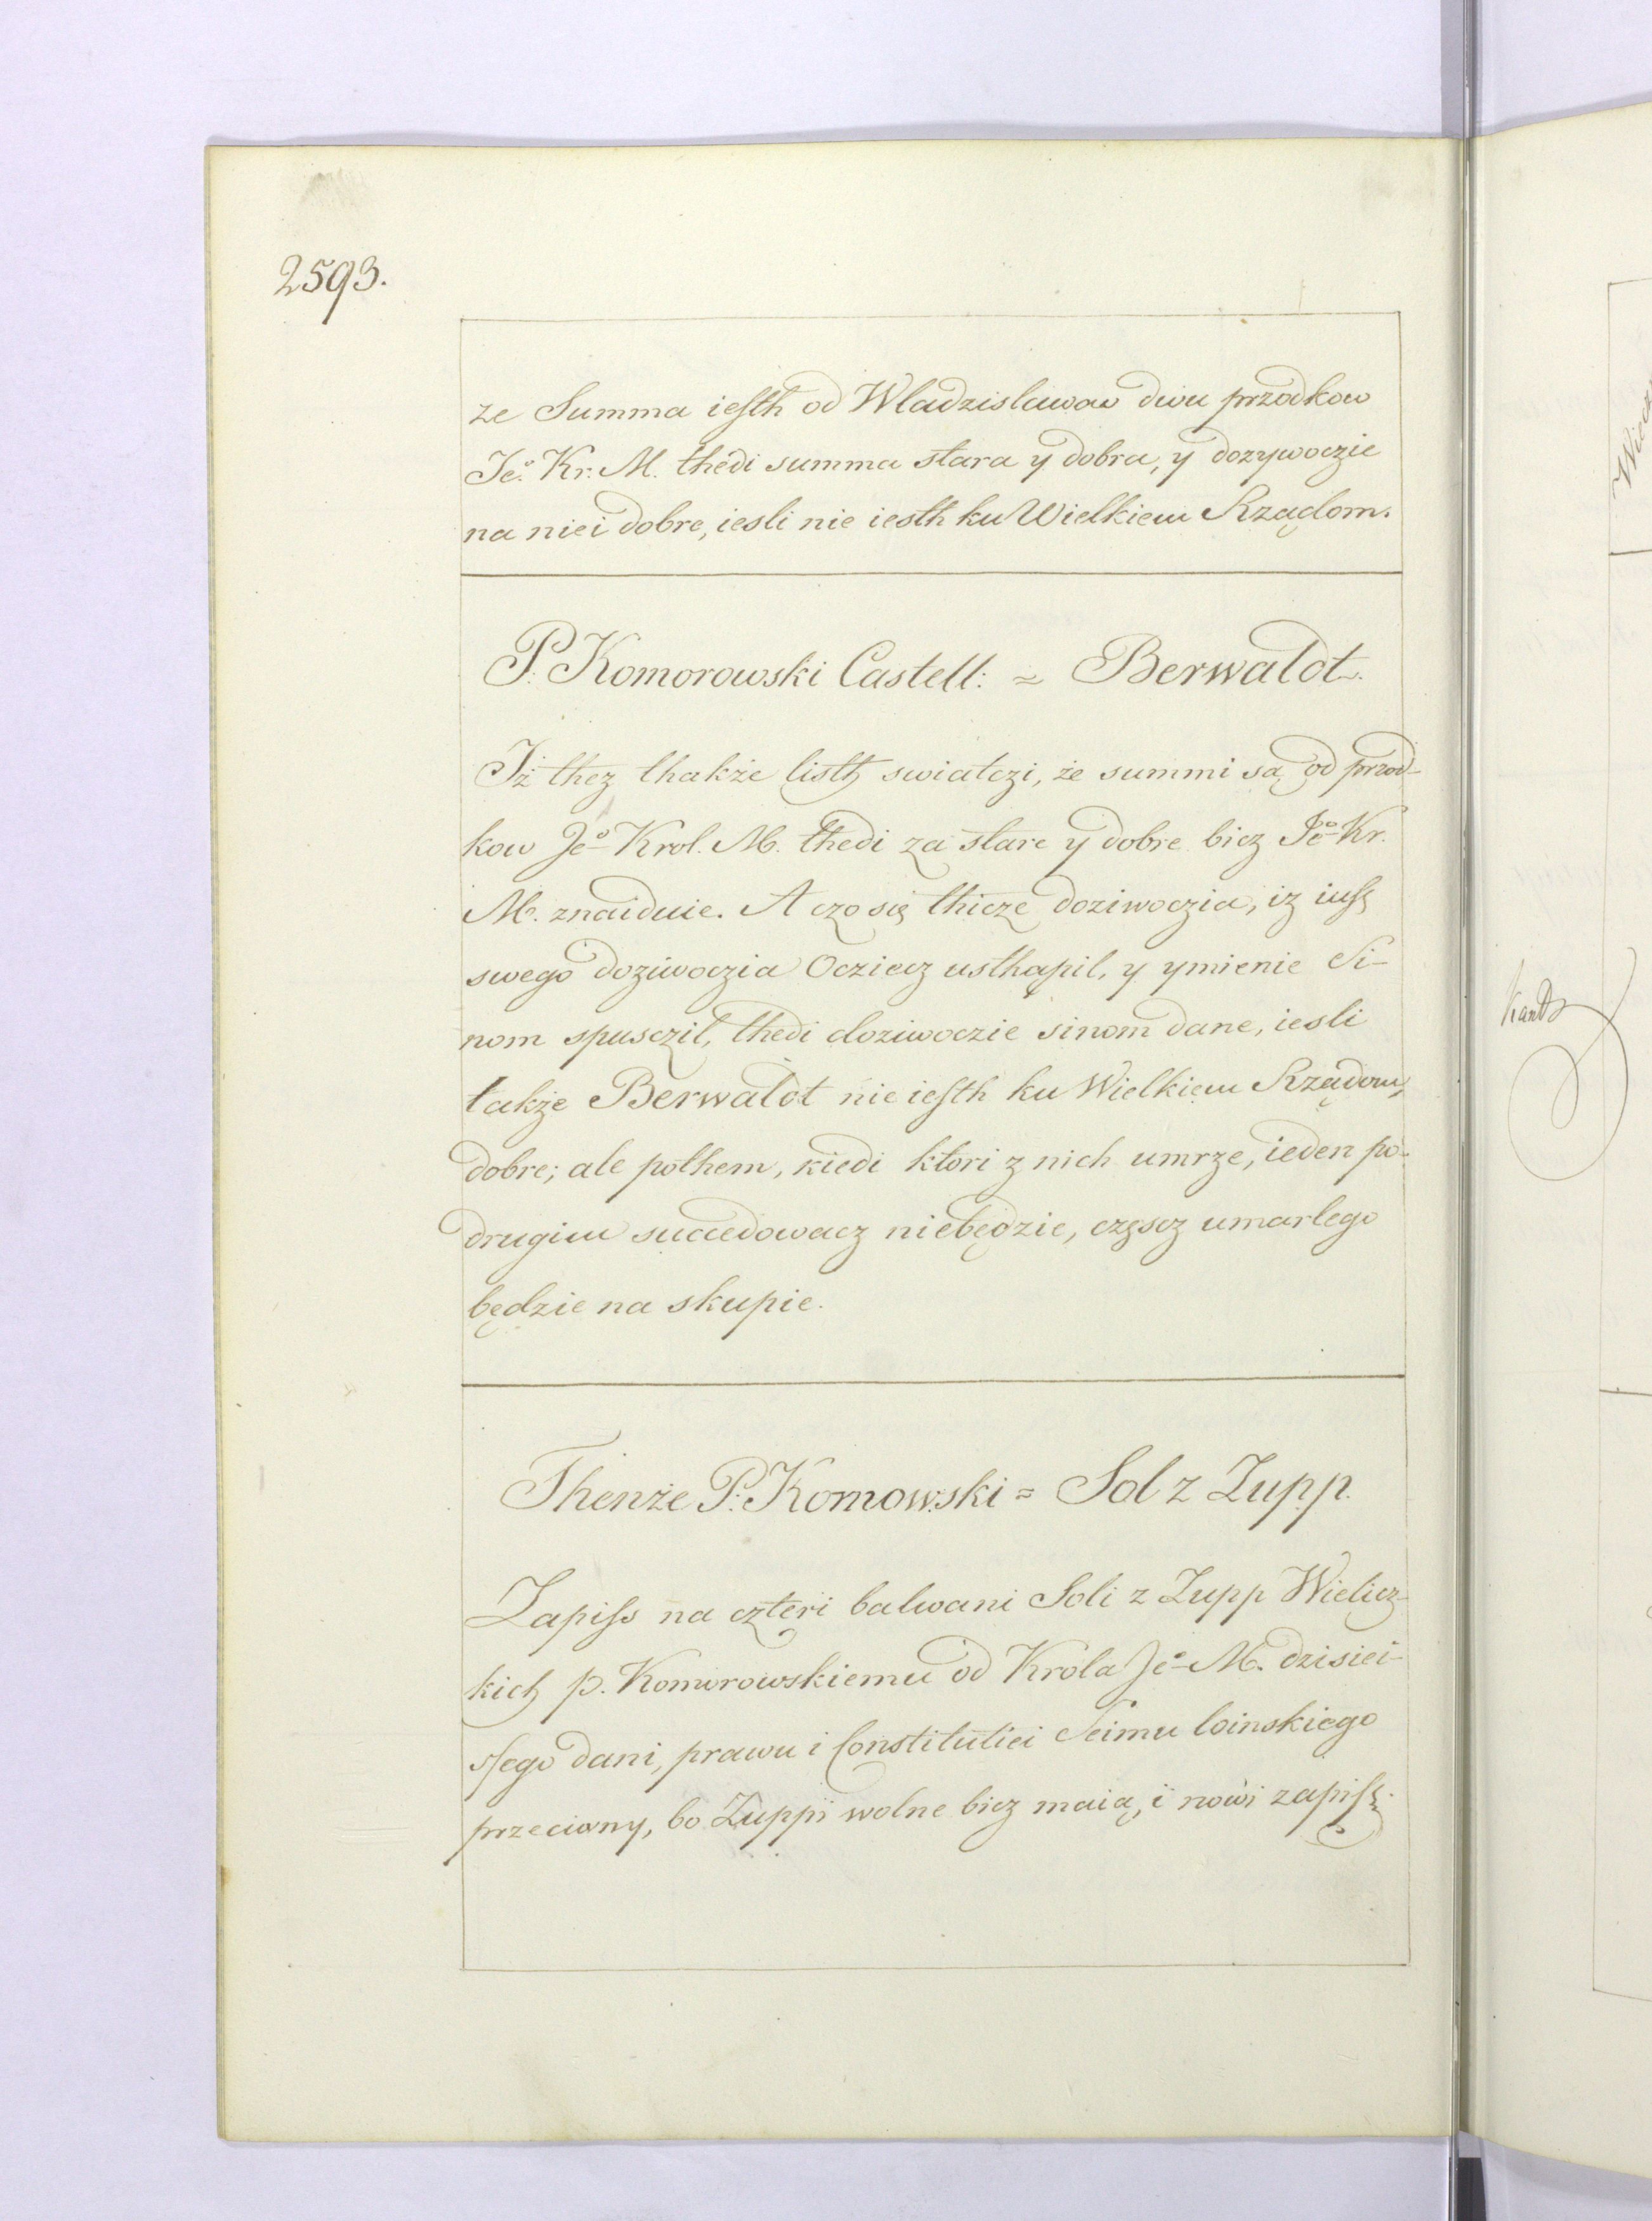 2593.
ze Summa iesth od Wladzislawow dwu przodkow
Jeº. Kr. M. thedi summa stara y dobra, y dozywoczie
na niei dobre, iesli nie iesth ku Wielkiem Rządom.
P. Komorowski Castell: = Berwaldt.
Jż thez thakże listh swiatczi, że summi są od przod-
kow Jeº Krol. M. thedi za stare y dobre bicz Jeº Kr.
M. znaiduie. A czo się thicze doziwoczia, iz iusz
swego doziwoczia Ocziecz usthąpil, y ymienie Si-
nom spusczil, thedi doziwoczie sinom dane, iesli
także Berwaldt nie iesth ku Wielkiem Rządom,
dobre; ale pothem, kiedi ktori z nich umrze, ieden po-
drugim succedowacz niebędzie, częscz umarlego
będzie na skupie.
Thenże P. Komowski = Sol z Zupp.
Zapiss na czteri balwani Soli z Zupp Wielicz-
kich p. Komorowskiemu od Krola Jeº M. dzisiei-
ssego dani, prawu i Constitutiei Seimu Coinskiego
przeciwny, bo Zuppi wolne bicz maią, i nowi zapisz